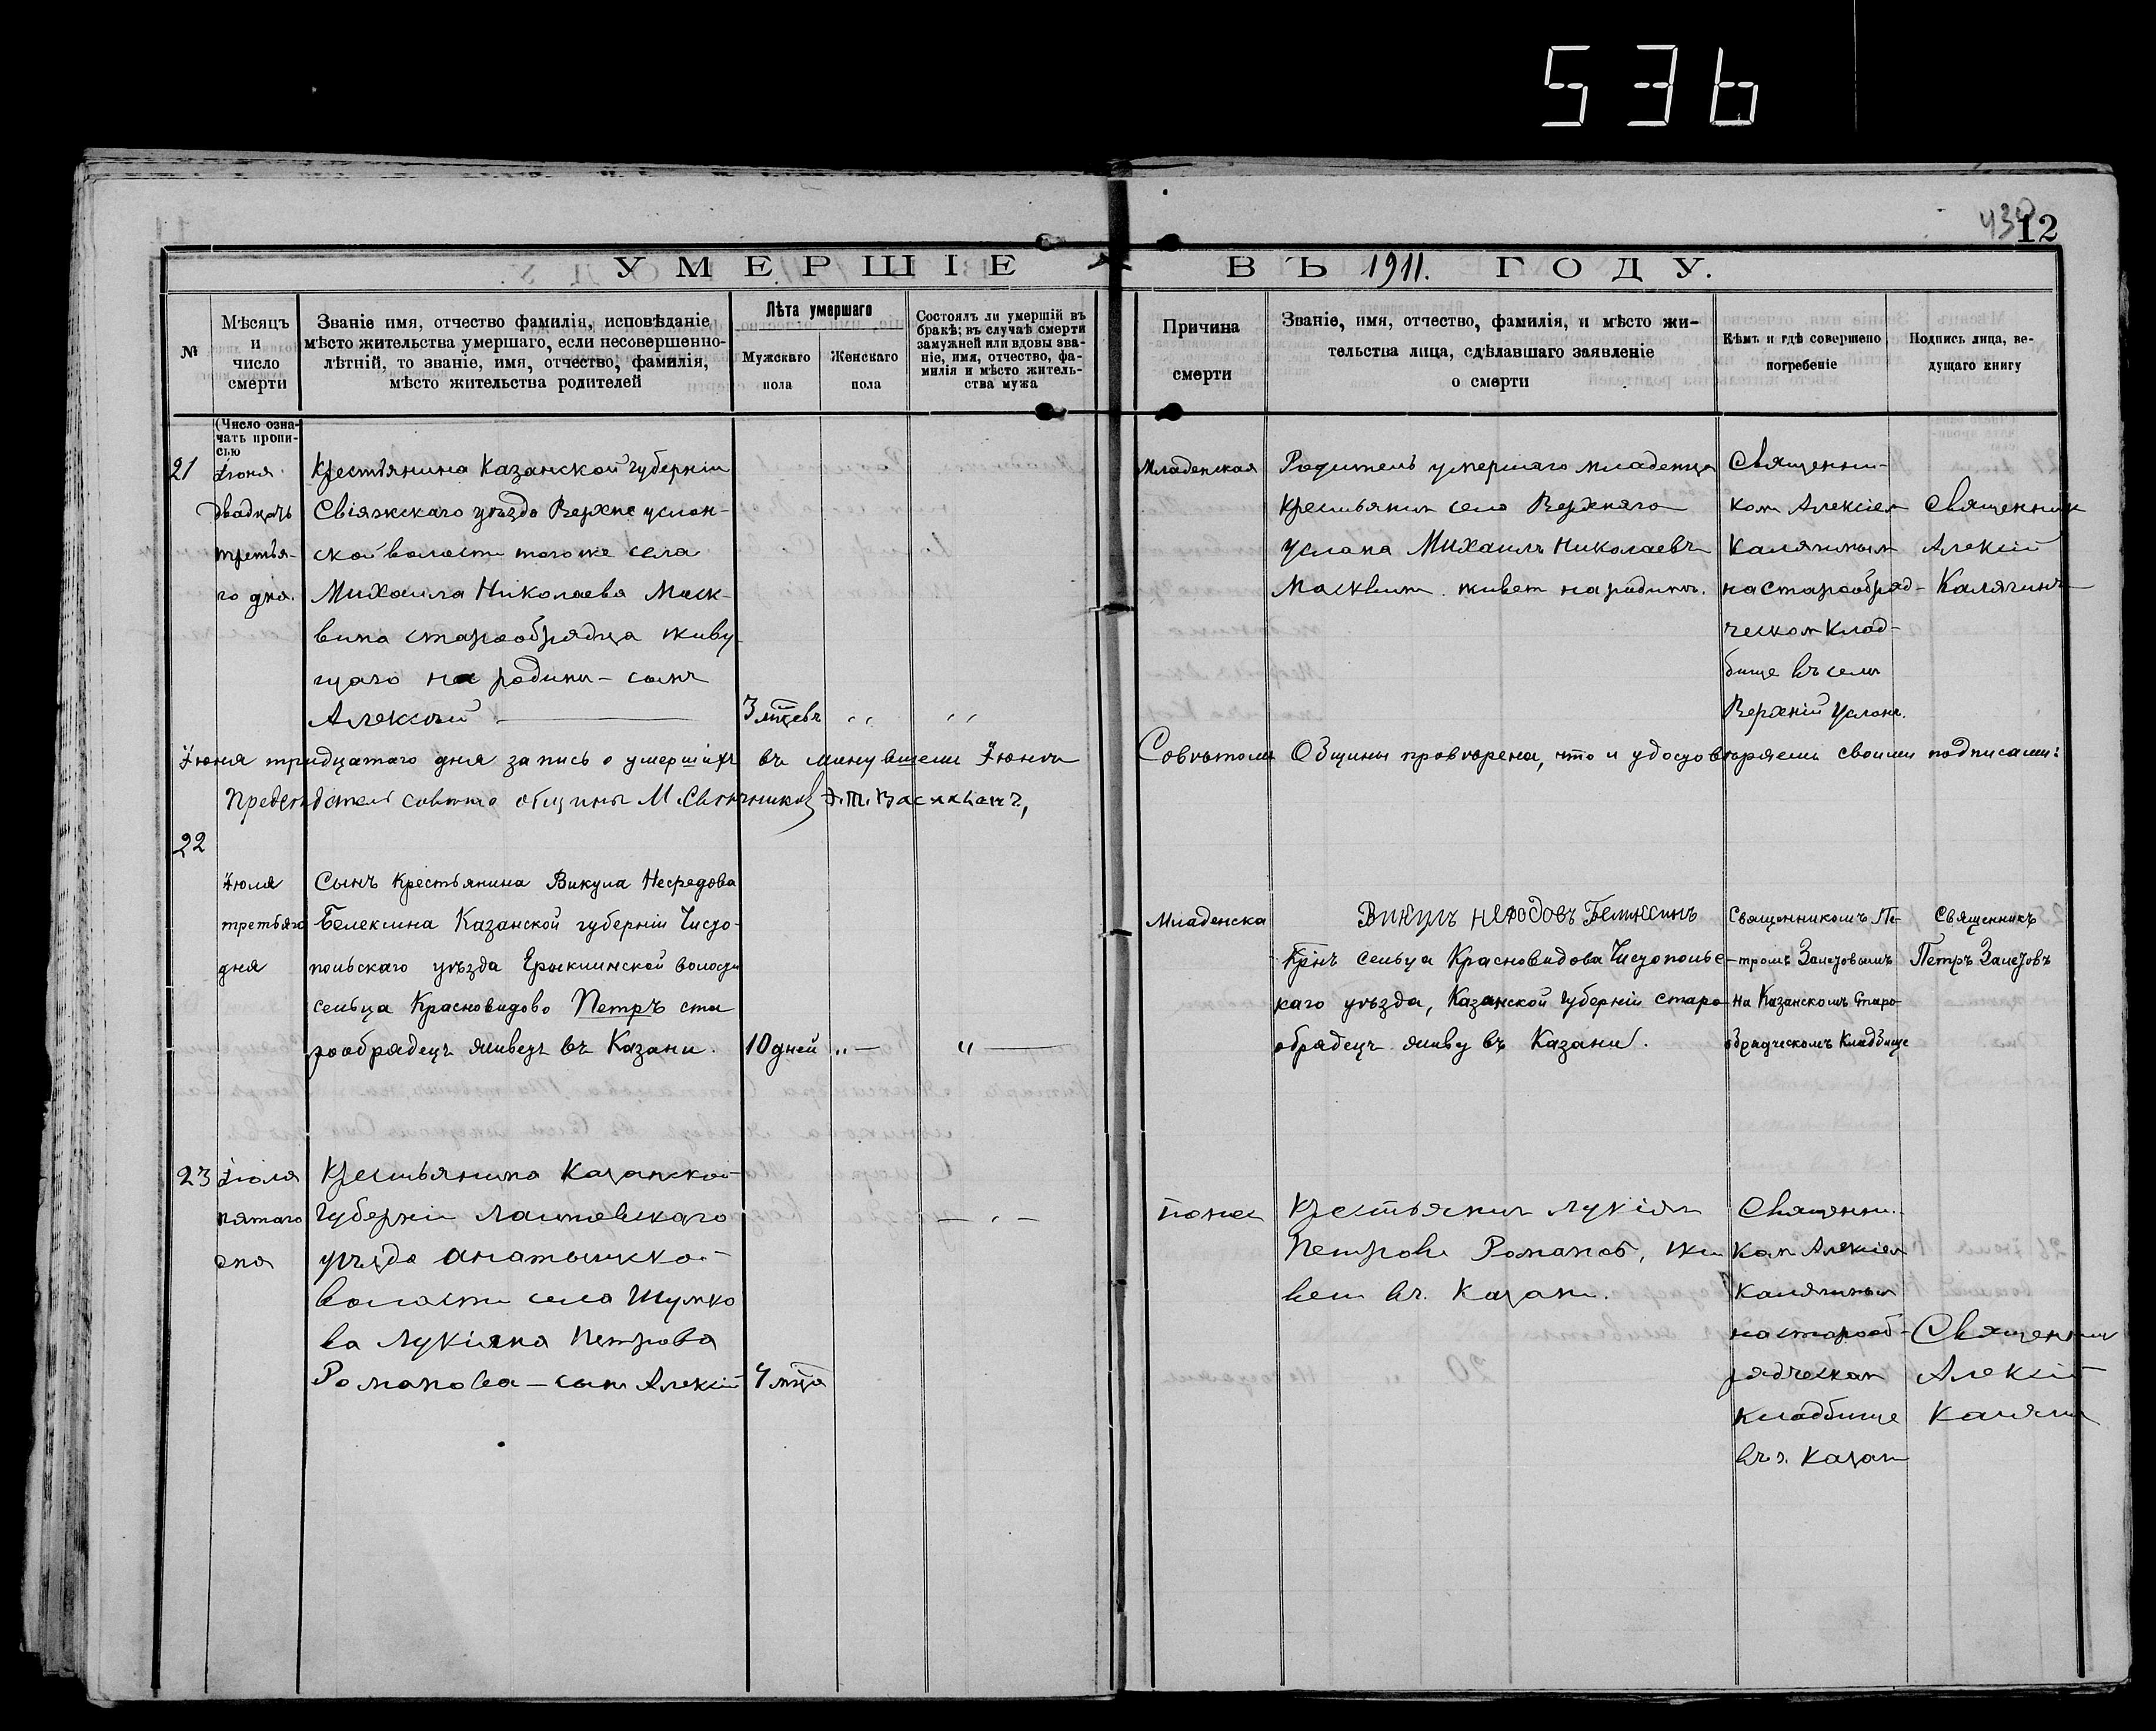 536
430
12
УМЕРШІЕ ВЪ 1911. ГОДУ.
№
Мѣсяцъ
и
число
смерти
Званіе имя, отчество фамилія, исповѣданіе
мѣсто жительства умершаго, если несовершенно-
лѣтній, то званіе, имя, отчество, фамилія,
мѣсто жительства родителей
Лѣта умершаго
Мужскаго
пола
Женскаго
пола
Состоялъ ли умершій въ
бракѣ; въ случаѣ смерти
замужней или вдовы зва-
ніе, имя, отчество, фа-
милія и мѣсто житель-
ства мужа
Причина
смерти
Званіе, имя, отчество, фамилія, и мѣсто жи-
тельства лица, сдѣлавшаго заявленіе
о смерти
Кѣмъ и гдѣ совершено
погребеніе
Подпись лица, ве-
дущаго книгу
(Число озна-
чать пропи-
сью
21
Іюня
двадцать
третья-
го дня.
Крестьянина Казанской губерніи
Свіяжскаго уѣзда Верхне услон-
ской волости того же села
Михаила Николаева Моск-
вина старообрядца живу
щаго на родины - сынъ
Алексѣй
3 мцевъ
" "
Младенская
Родитель умершаго младенца
крестьянин села Верхняго
Услона Михаилъ Николаевъ
Москвин. живет на родинѣ.
Священни-
ком Алексіем
Калягиным
на старообряд-
ческом клад-
бище въ селѣ
Верхній Услонъ.
Священник
Алексій
Калягинъ
Іюня тридцатаго дня запись о умершихъ въ минувшемъ Іюнѣ Совѣтомъ Общины провѣрена, что и удостовѣряемъ своими подписами:
Предсѣдатель совѣта общины М. Свѣчников
22
Іюля
третьяго
дня
Сынъ крестьянина Викула Нефедова
Белексина Казанской губерніи Чисто-
польскаго уѣзда Ерыклинской волости
сельца Красновидово Петръ ста
рообрядецъ живетъ въ Казани.
10 дней
" —
" —
Младенска
Викулъ Нефодовъ Беликсинъ
Крнъ сельца Красновидова Чистопольс
каго уѣзда, Казанской губерніи старо
обрядецъ живу въ Казани.
Священникомъ Пе-
тромъ Залетовымъ
На Казанскомъ Старо-
обрядческомъ Кладбище
Священникъ
Петръ Залетовъ
23
Іюля
пятаго
дня
Крестьянина Казанской
Губерніи Лаишевскаго
уѣзда
волости села Шумко
ва Лукіяна Петрова
Романова - сын Алексій
4 мца
— " —
понос
Крестьянин Лукіян
Петровъ Романов, жи
вет въ Казани.
Священни-
ком Алексіем
Калягиным
на старооб-
рядческом
кладбище
въ г. Казани
Священник
Алексій
Калягин